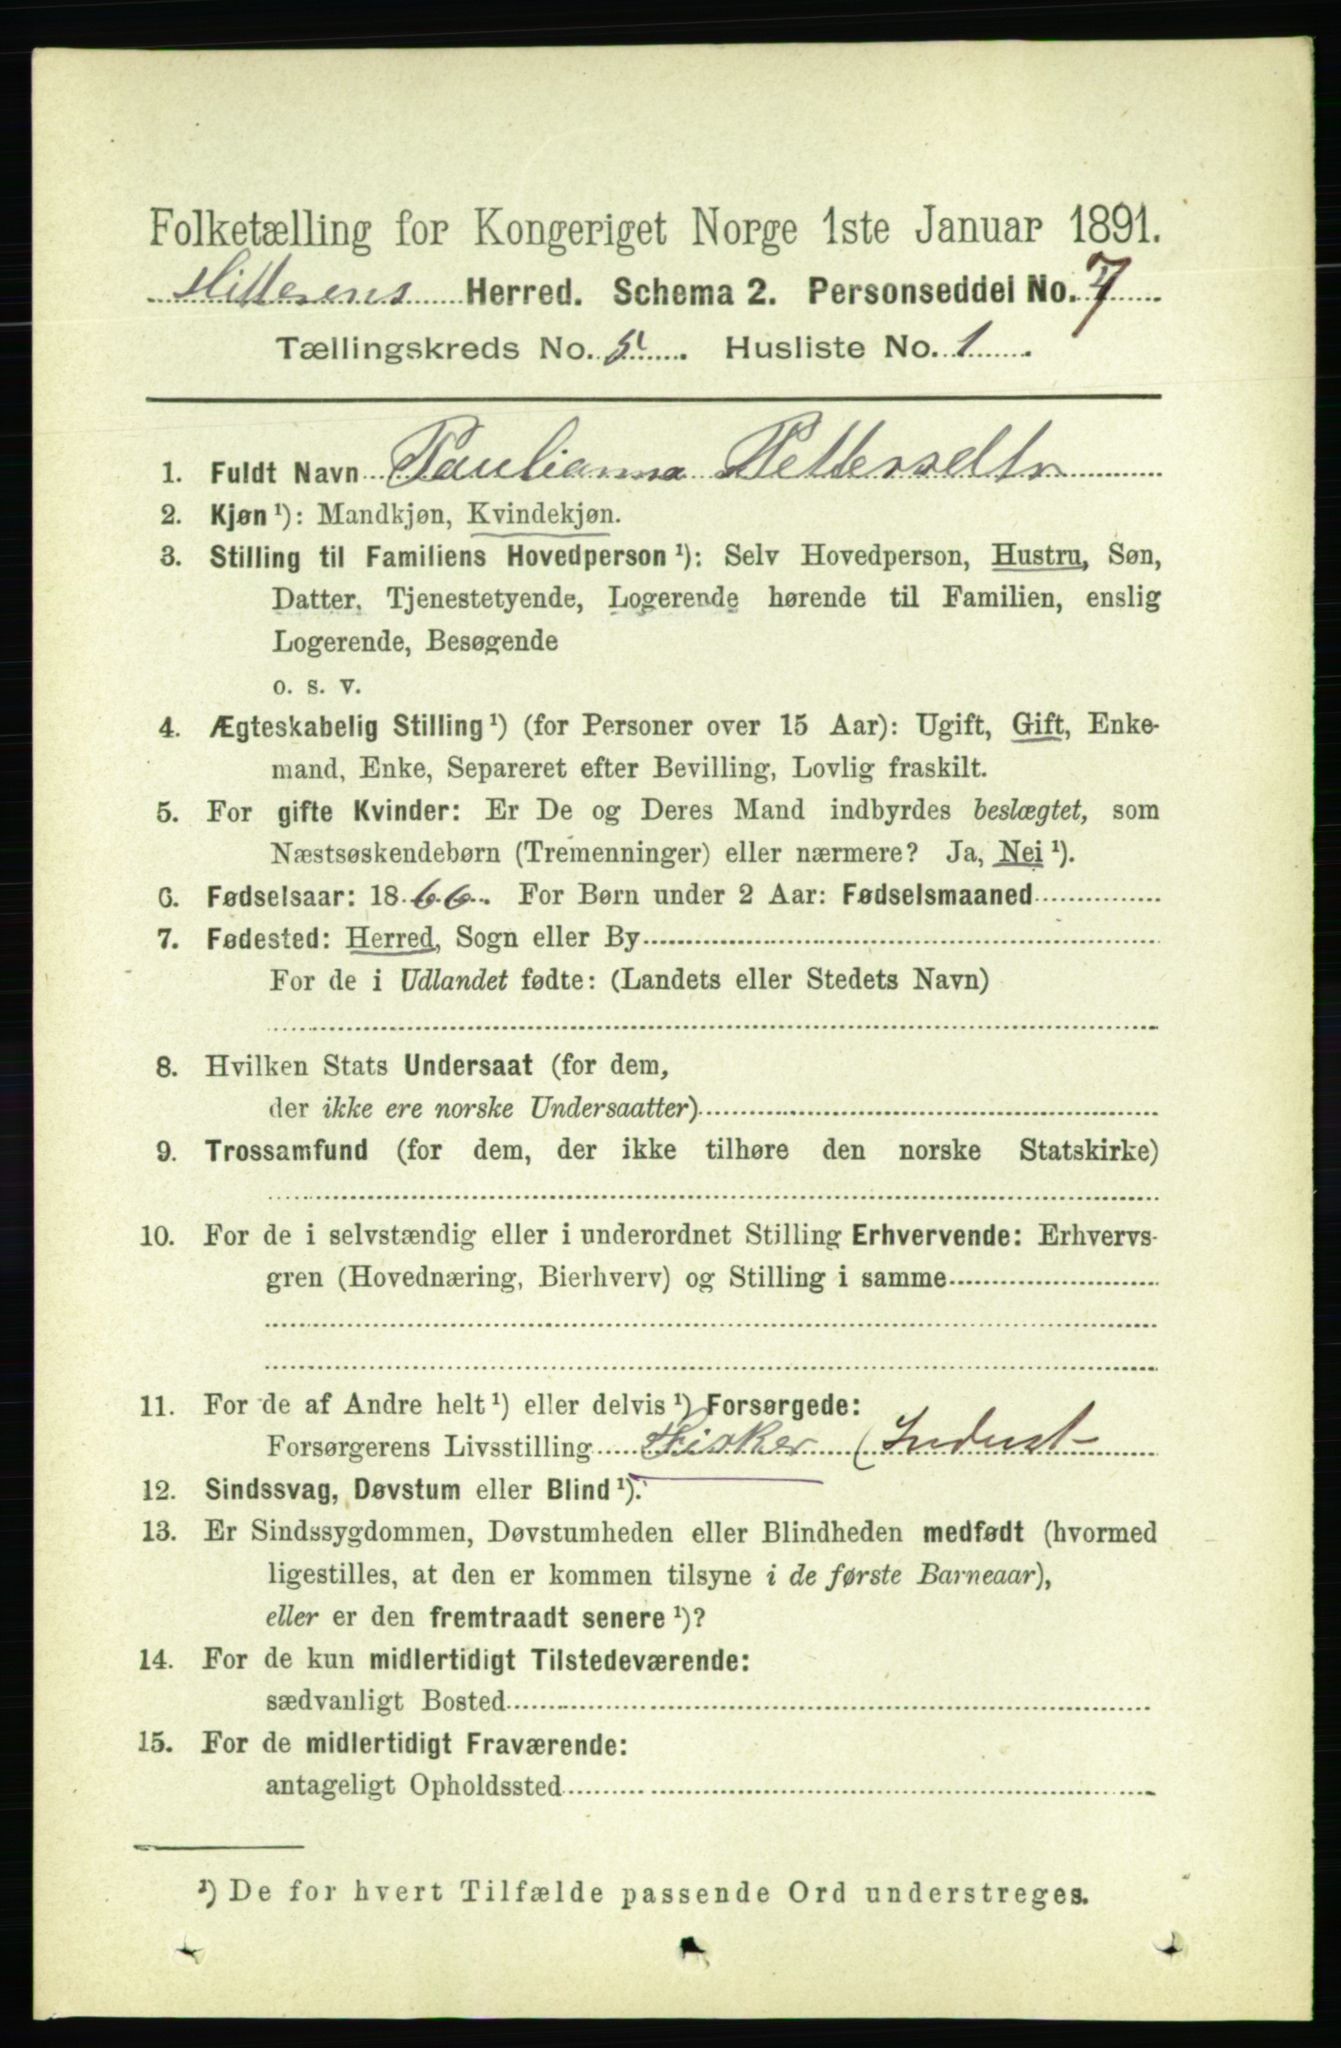 Folketælling for Kongeriget Norge 1ste Januar 1891.
Hitterens Herred. Schema 2. Personseddel No. 7
Tællingskreds No. 5. Husliste No. 1
1. Fuldt Navn Paulianna Pettersdtr
2. Kjøn ¹): Mandkjøn, Kvindekjøn.
3. Stilling til Familiens Hovedperson ¹): Selv Hovedperson, Hustru, Søn,
Datter, Tjenestetyende, Logerende hørende til Familien, enslig
Logerende, Besøgende
o. s. v.
4. Ægteskabelig Stilling ¹) (for Personer over 15 Aar): Ugift, Gift, Enke-
mand, Enke, Separeret efter Bevilling, Lovlig fraskilt.
5. For gifte Kvinder: Er De og Deres Mand indbyrdes beslægtet, som
Næstsøskendebørn (Tremenninger) eller nærmere? Ja, Nei ¹).
6. Fødselsaar: 1866. For Børn under 2 Aar: Fødselsmaaned
7. Fødested: Herred, Sogn eller By
For de i Udlandet fødte: (Landets eller Stedets Navn)
8. Hvilken Stats Undersaat (for dem,
der ikke ere norske Undersaatter)
9. Trossamfund (for dem, der ikke tilhøre den norske Statskirke)
10. For de i selvstændig eller i underordnet Stilling Erhvervende: Erhvervs-
gren (Hovednæring, Bierhverv) og Stilling i samme
11. For de af Andre helt ¹) eller delvis ¹) Forsørgede:
Forsørgerens Livsstilling Fisker (Indust-
12. Sindssvag, Døvstum eller Blind ¹).
13. Er Sindssygdommen, Døvstumheden eller Blindheden medfødt (hvormed
ligestilles, at den er kommen tilsyne i de første Barneaar),
eller er den fremtraadt senere ¹)?
14. For de kun midlertidigt Tilstedeværende:
sædvanligt Bosted
15. For de midlertidigt Fraværende:
antageligt Opholdssted
¹) De for hvert Tilfælde passende Ord understreges.